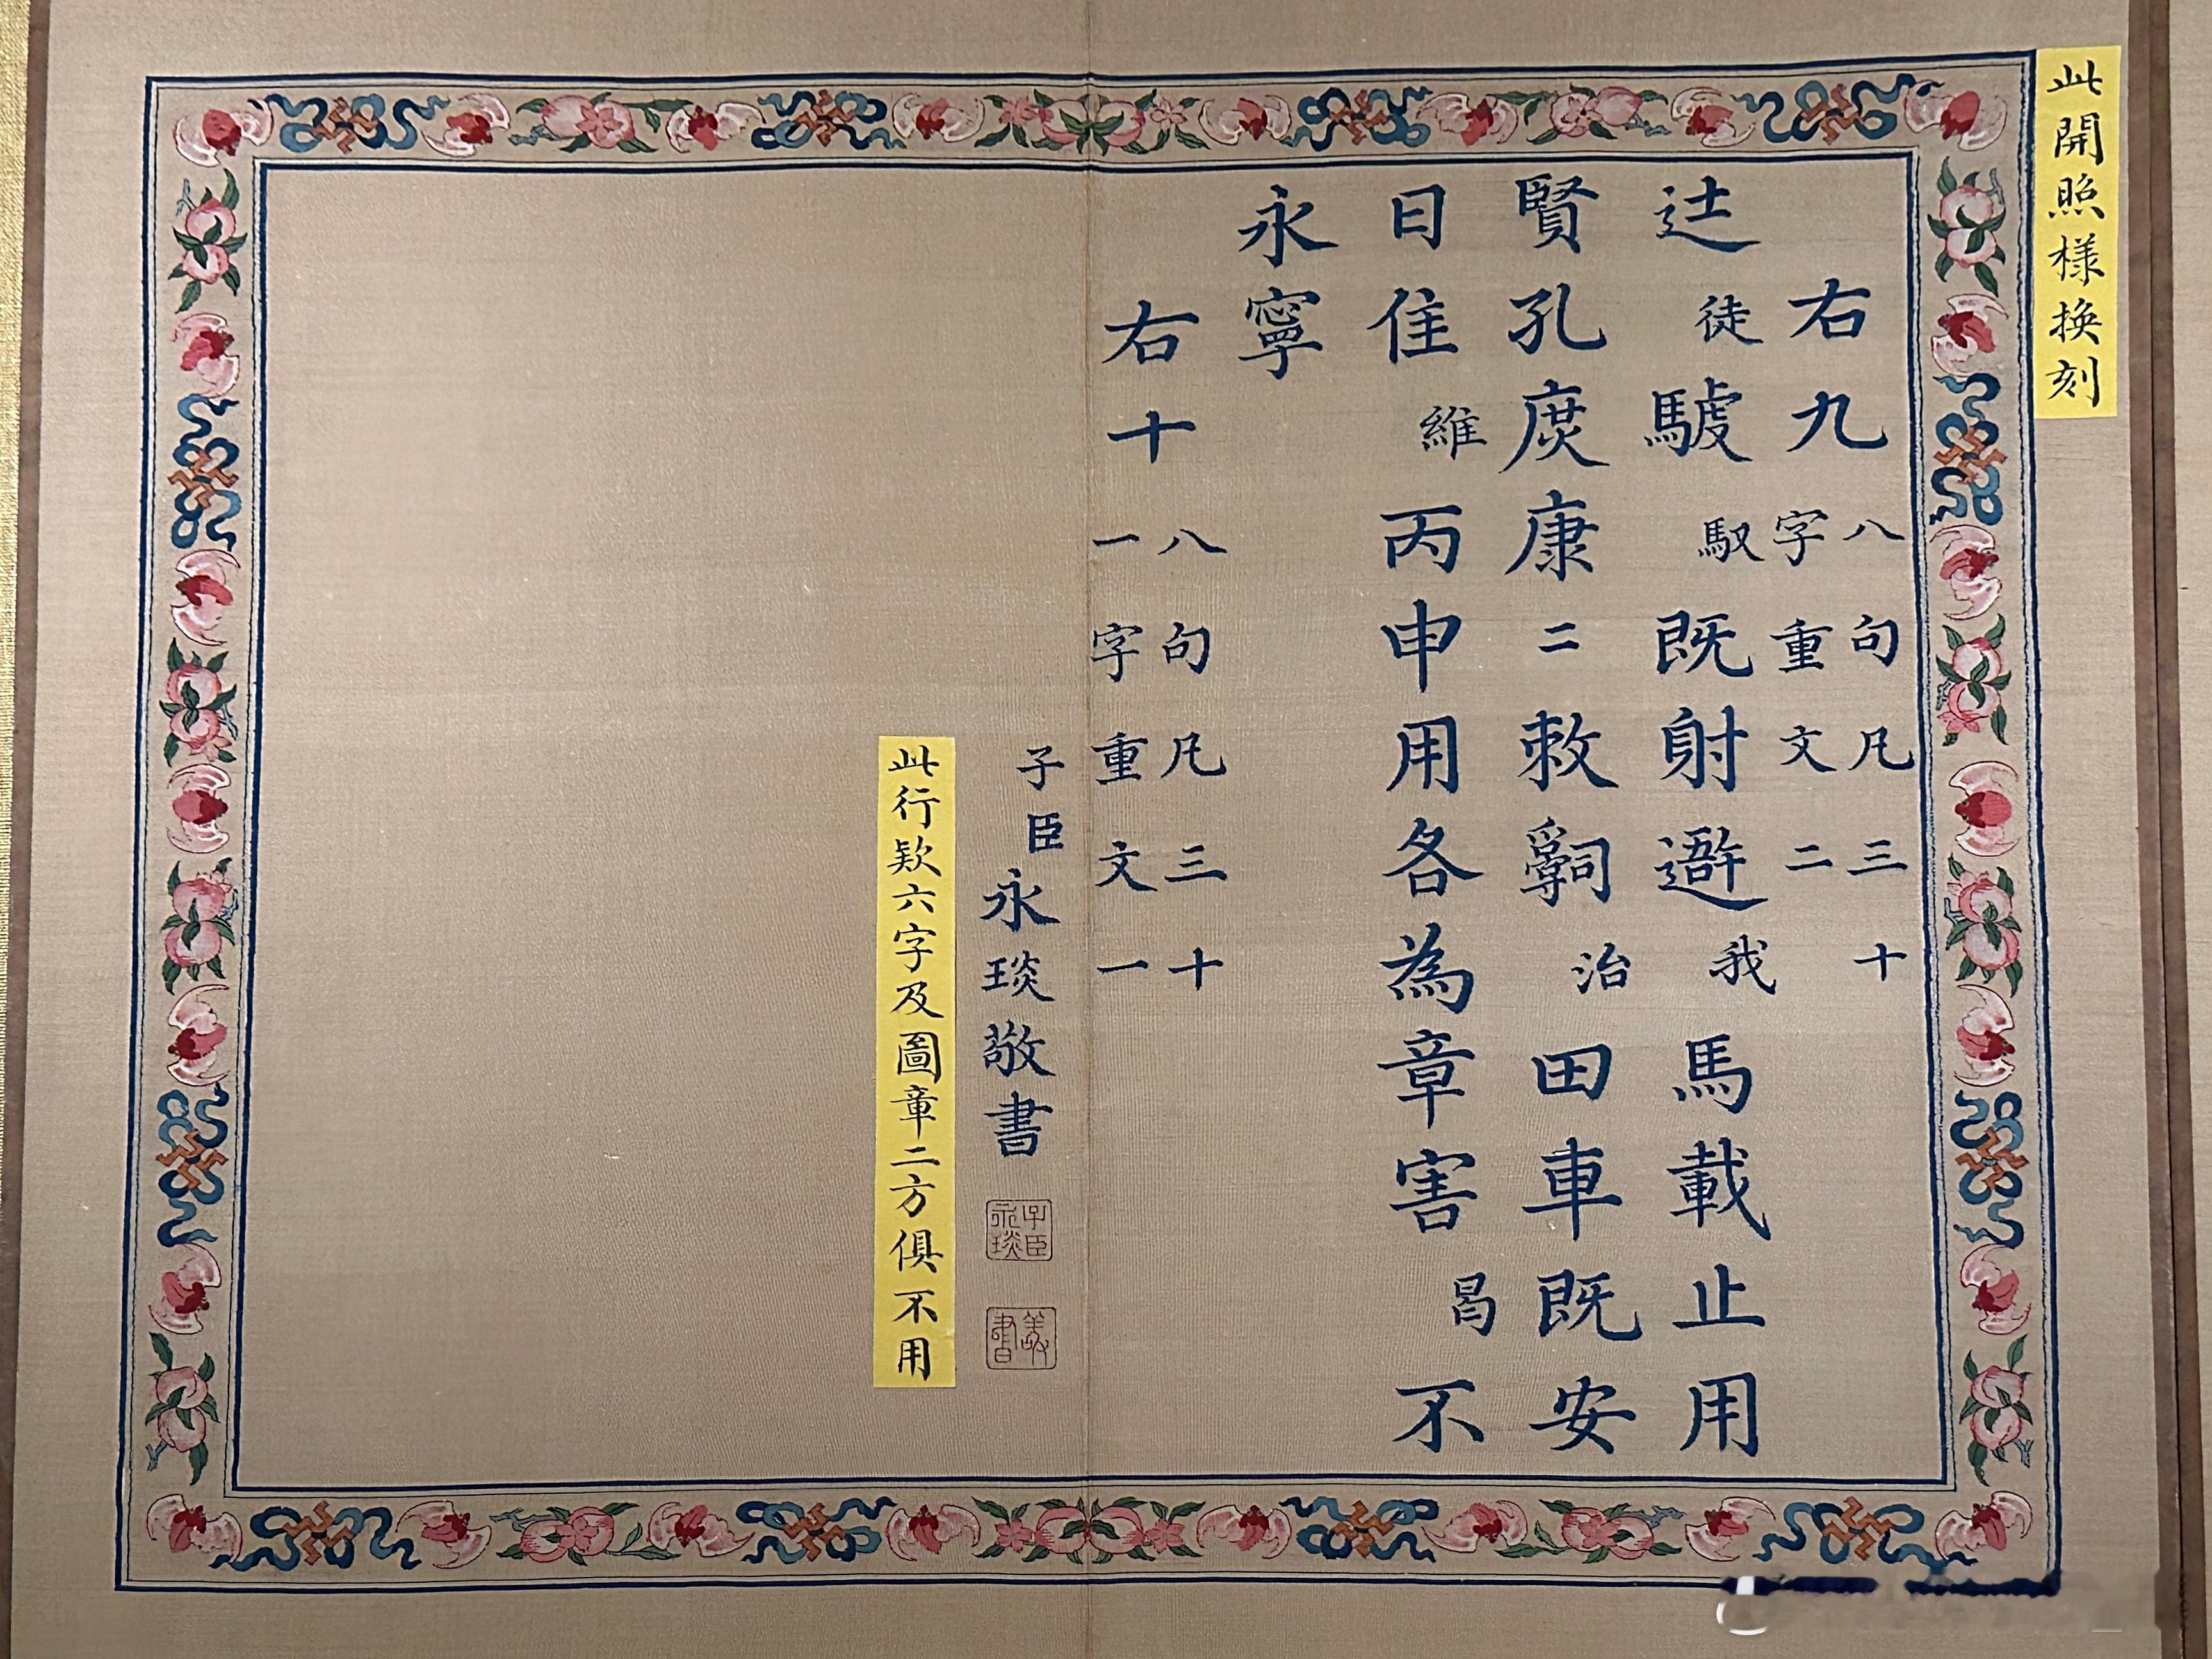 此開照様換刻
右九八句凡三十
字重文二
辻徒䮐馭既射遻我馬載止用
賢孔庶康二敕辭治田車既安
日隹維丙申用各為章害曷不
永寧
右十八句凡三十
一字重文一
子臣永琰敬書
子臣永琰
敬書
此行欵六字及圖章二方俱不用